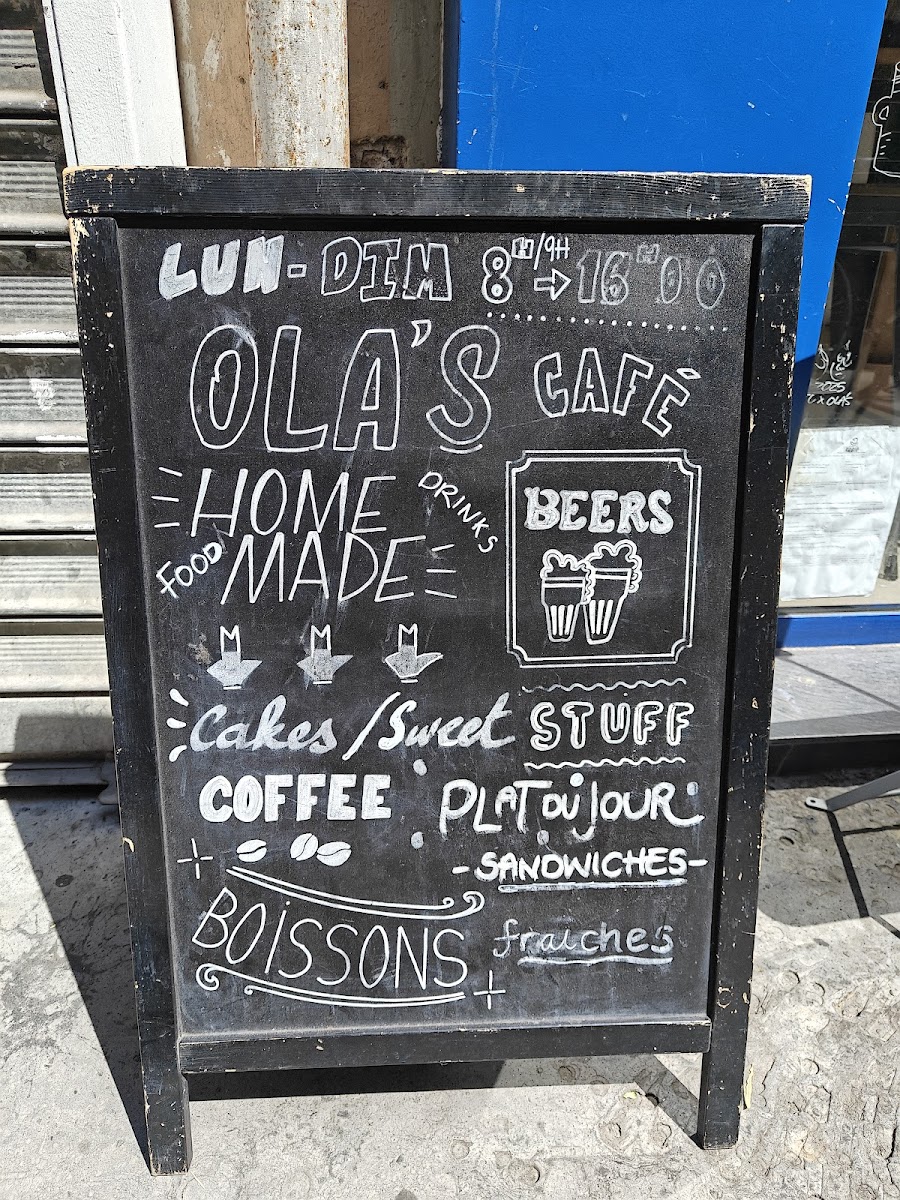 LUN-DIM 8H/9H → 16H00
OLA'S CAFÉ
HOME
MADE
FOOD
DRINKS
BEERS
Cakes/Sweet STUFF
COFFEE
PLAT DU JOUR
-SANDWICHES-
BOISSONS fraiches
2025